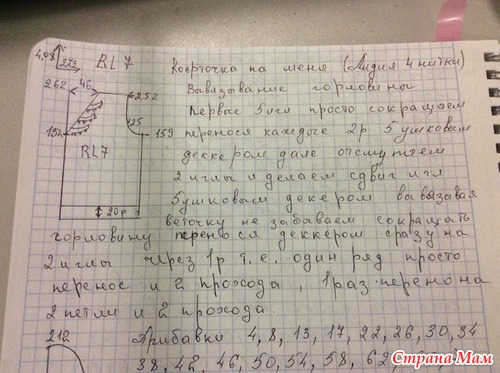 4,08 2,73 RL7 Кофточка на меня (Лидия 4 нитки)
262 46 252 Вывязывание горловины
первые 5 игл просто сокращаем
125
152 159 перенося каждые 2р 5 ушковым
RL7 деккером дале отступаем
2 иглы и делаем сдвиг игл
5 ушковым декером вывязывая
20 р веточку не забываем сокращать
горловину перенося деккером сразу на
2 иглы через 1р т.е. один ряд просто
перенос и 2 прохода, 1 раз перенос на
2 петли и 2 прохода.
212 Прибавки 4, 8, 13, 17, 22, 26, 30, 34
38, 42, 46, 50, 54, 58, 62
Страна Мам